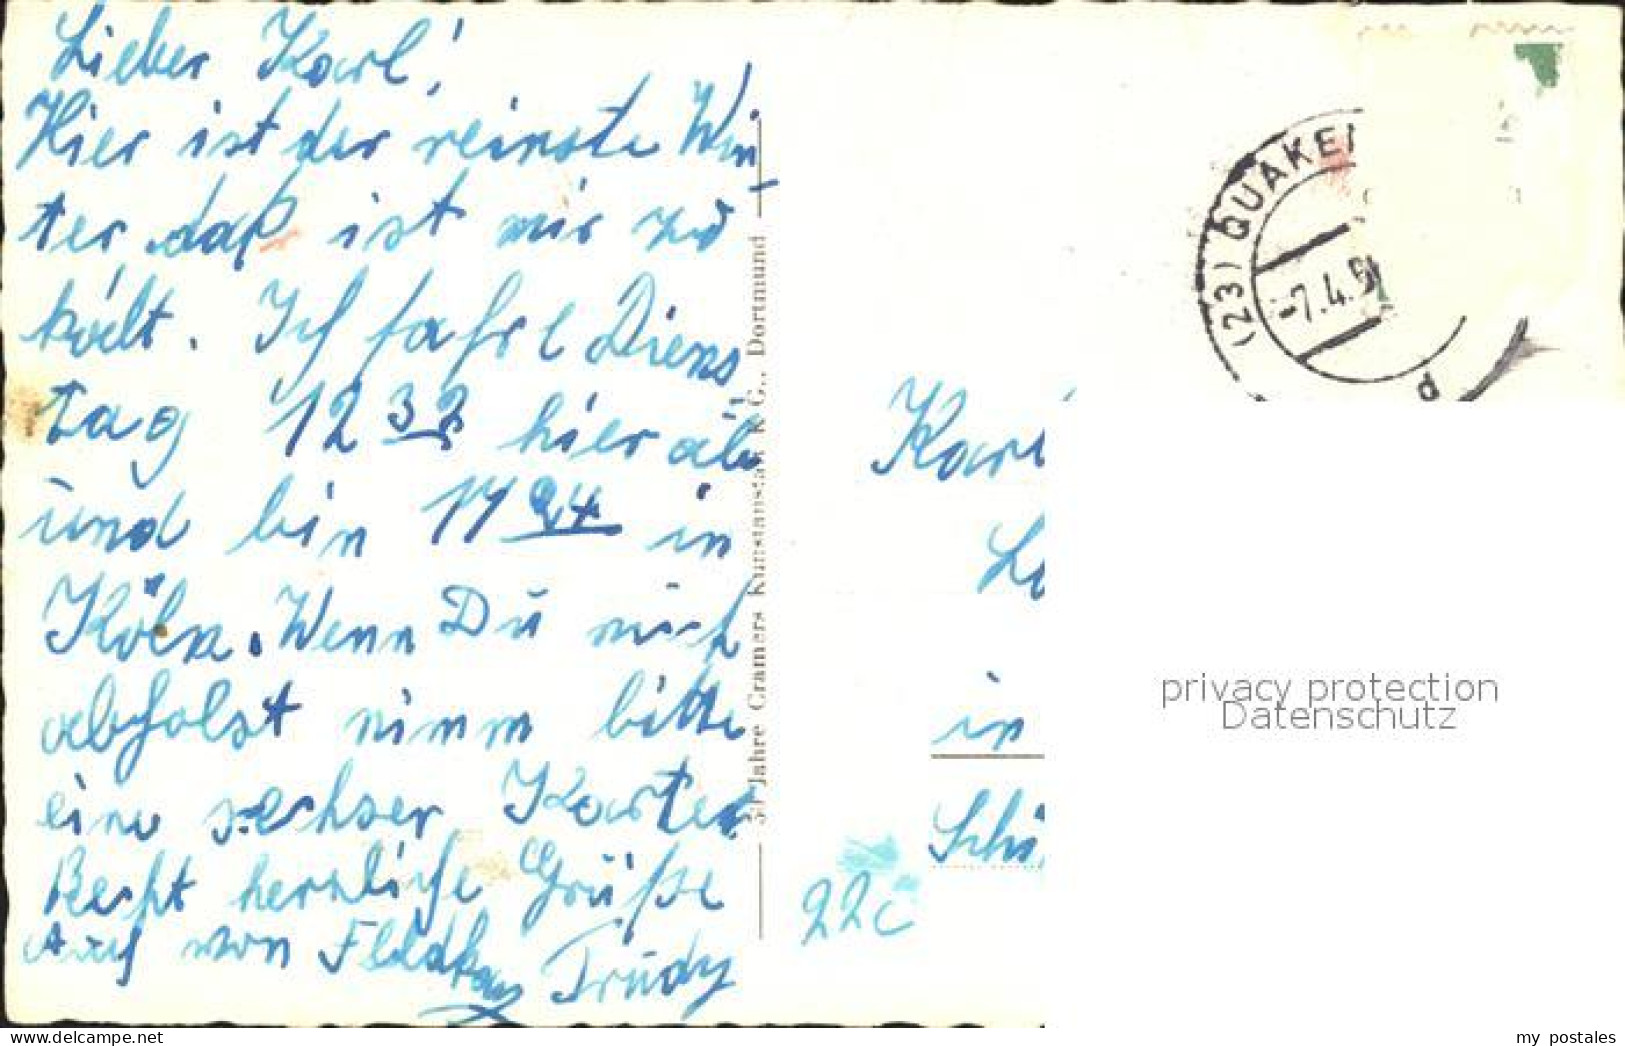 Lieber Karl!
Hier ist der reinste Win
ter daß ist mir zu
kalt. Ich fahre Diens
tag 12 32 hier ab
und bin 17 24 in
Köln. Wenn Du mich
abholst nimm bitte
eine sechser Karte
Recht herzliche Grüße
Auch von Trudy
50 Jahre Cramers Kunstanstalt K G., Dortmund
(23) QUAKEN
-7.4.5
d
Karl
in
Schi
22c
privacy protection
Datenschutz
my postales